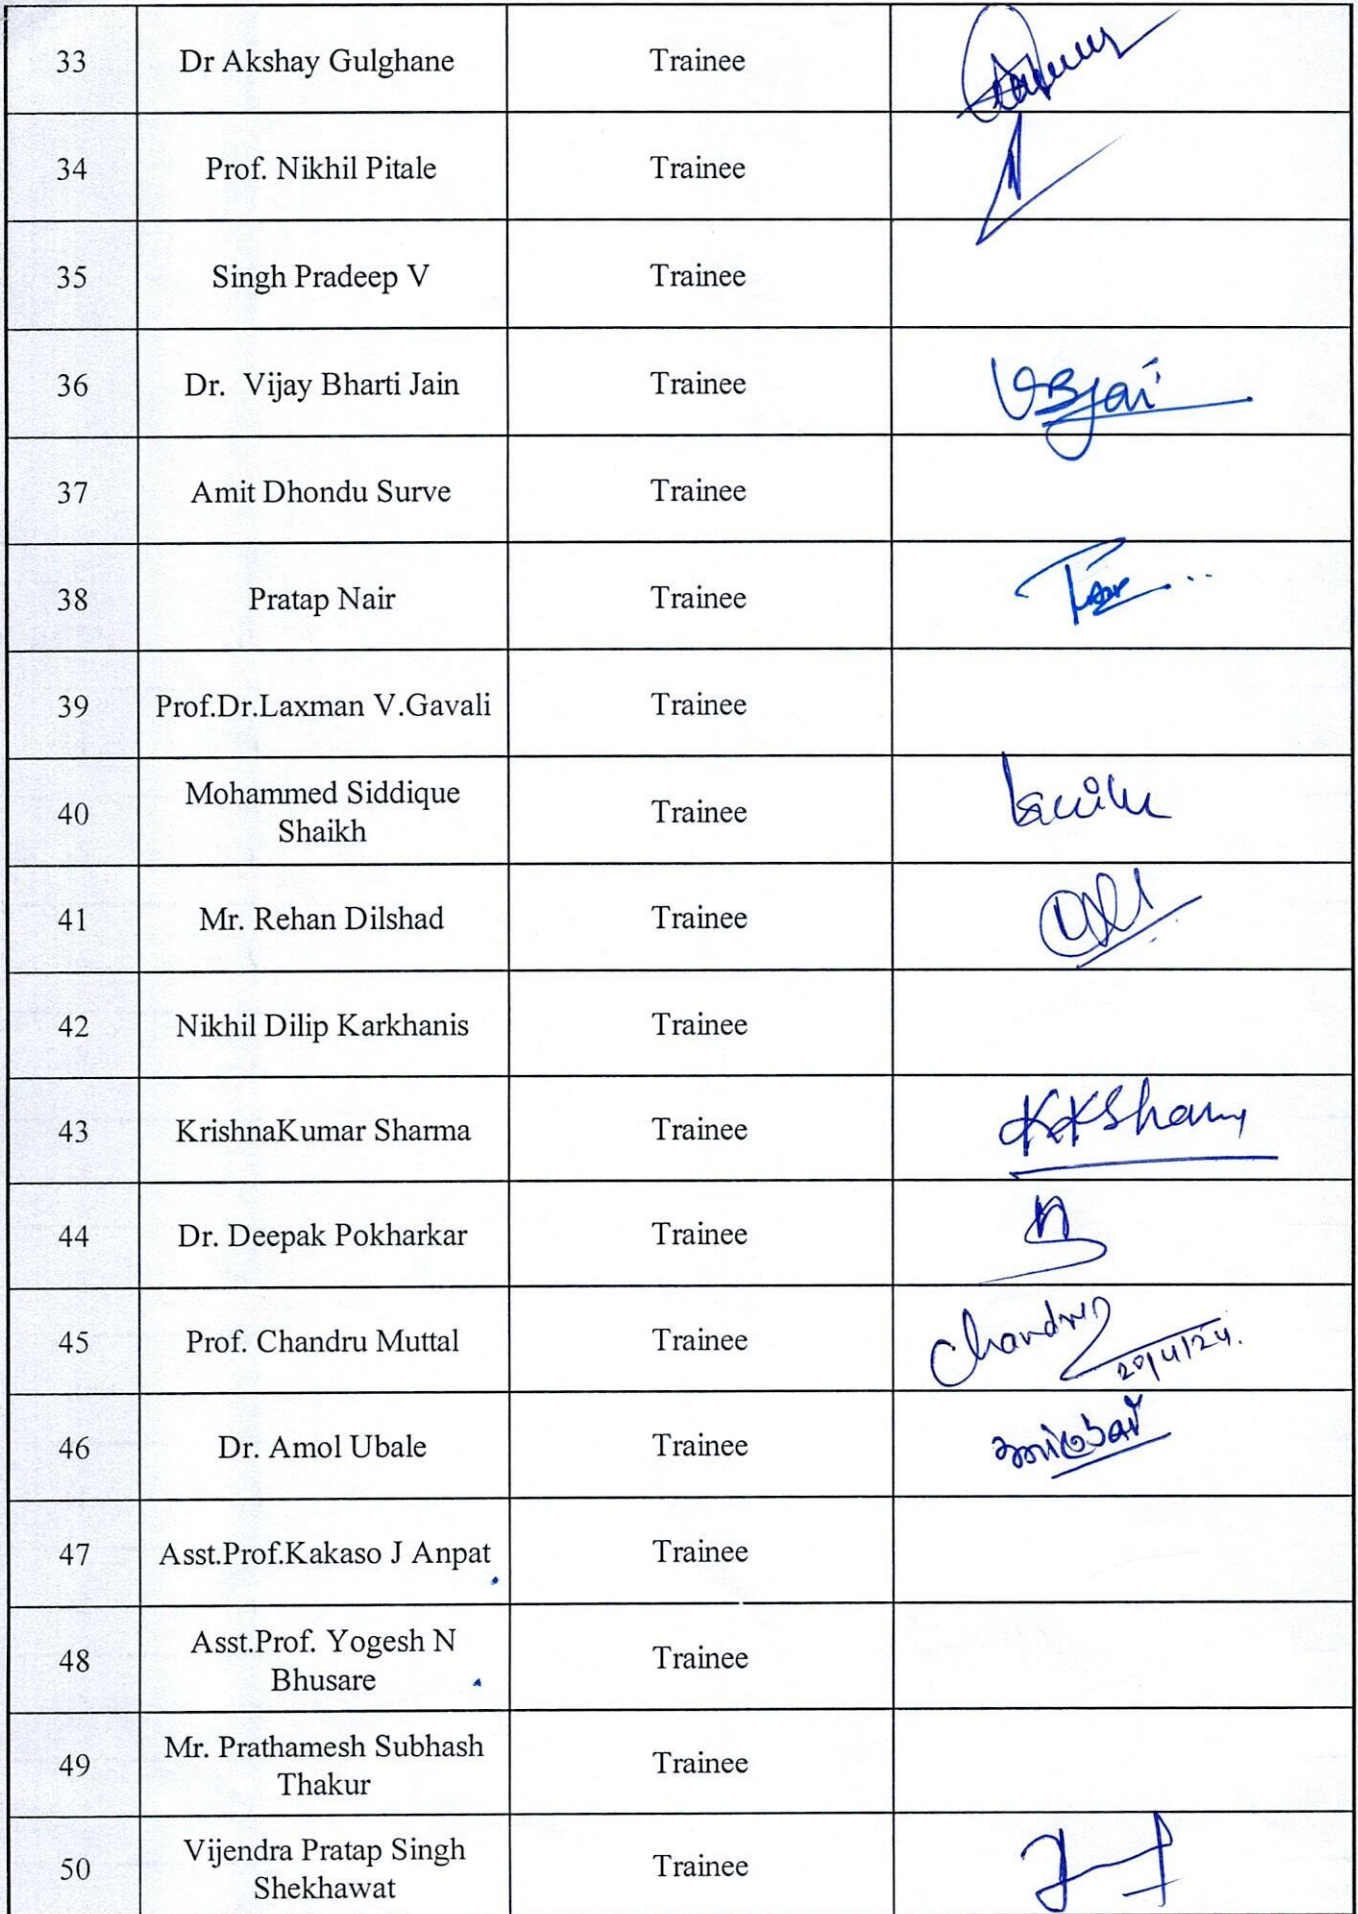 33 Dr Akshay Gulghane Trainee
34 Prof. Nikhil Pitale Trainee
35 Singh Pradeep V Trainee
36 Dr. Vijay Bharti Jain Trainee VBJai
37 Amit Dhondu Surve Trainee
38 Pratap Nair Trainee
39 Prof.Dr.Laxman V.Gavali Trainee
40 Mohammed Siddique
Shaikh Trainee
41 Mr. Rehan Dilshad Trainee
42 Nikhil Dilip Karkhanis Trainee
43 KrishnaKumar Sharma Trainee
44 Dr. Deepak Pokharkar Trainee
45 Prof. Chandru Muttal Trainee Chandru
20/4/24.
46 Dr. Amol Ubale Trainee
47 Asst.Prof.Kakaso J Anpat Trainee
48 Asst.Prof. Yogesh N
Bhusare Trainee
49 Mr. Prathamesh Subhash
Thakur Trainee
50 Vijendra Pratap Singh
Shekhawat Trainee